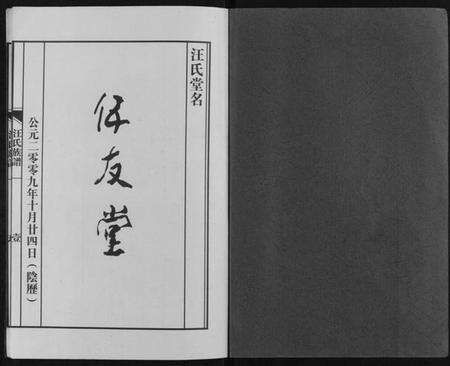 汪氏堂名
友堂
公元二零零九年十月廿四日（陰歷）
汪氏族譜
壹